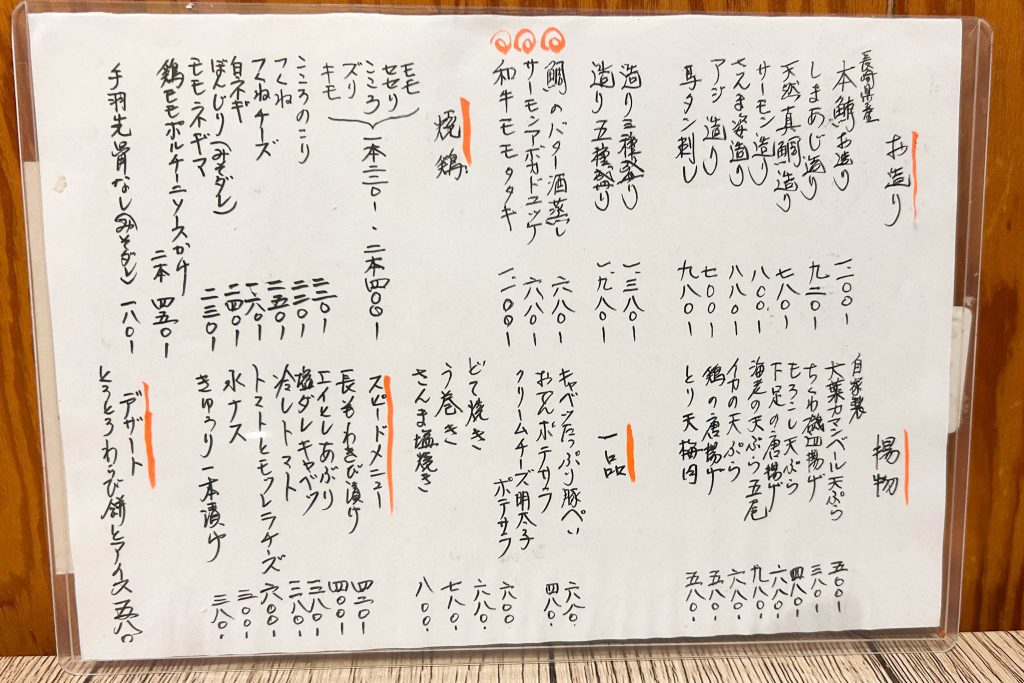 お造り
長崎県産
本鮪お造り 一、一〇〇ー
しまあじ造り 九二〇ー
天然真鯛造り 七八〇ー
サーモン造り 八〇〇ー
さんま姿造り 八八〇ー
アジ造り 七〇〇ー
牛タン刺し 九八〇ー
造り三種盛り 一、三八〇ー
造り五種盛り 一、九八〇ー
鯛のバター酒蒸し 六八〇ー
サーモンアボカドユッケ 八八〇ー
和牛モモタタキ 一、一〇〇ー
焼鶏
モモ
セセリ
こころ
ズリ
キモ
一本二二〇ー、二本四〇〇ー
こころのこり 二三〇ー
つくね 二二〇ー
つくねチーズ 二五〇ー
白ネギ 一六〇ー
ぼんじり(みそダレ) 二四〇ー
モモネギマ 二三〇ー
鶏モモポルチーニソースかけ 二本 四五〇ー
手羽先骨なし(みそダレ) 一八〇ー
揚物
自家製
大葉カマンベール天ぷら 五〇〇ー
ちくわ磯辺揚げ 三八〇ー
もろこし天ぷら 四八〇ー
下足の唐揚げ 六八〇ー
海老の天ぷら五尾 九八〇ー
イカの天ぷら 六八〇ー
鶏の唐揚げ 五八〇ー
とり天 梅肉 五八〇ー
一品
キャベツたっぷり豚ぺい 六八〇ー
おでんポテサラ 四八〇ー
クリームチーズ明太子
ポテサラ 六〇〇
どて焼き 六八〇ー
う巻き 七八〇ー
さんま塩焼き 八〇〇ー
スピードメニュー
長芋わさび漬け 四二〇ー
エイヒレあぶり 四〇〇ー
塩ダレキャベツ 三八〇ー
冷しトマト 三八〇ー
トマトとモッツァレラチーズ 六〇〇ー
水ナス 三〇〇ー
きゅうり一本漬け 三八〇ー
デザート
とろとろわらび餅とアイス 五八〇